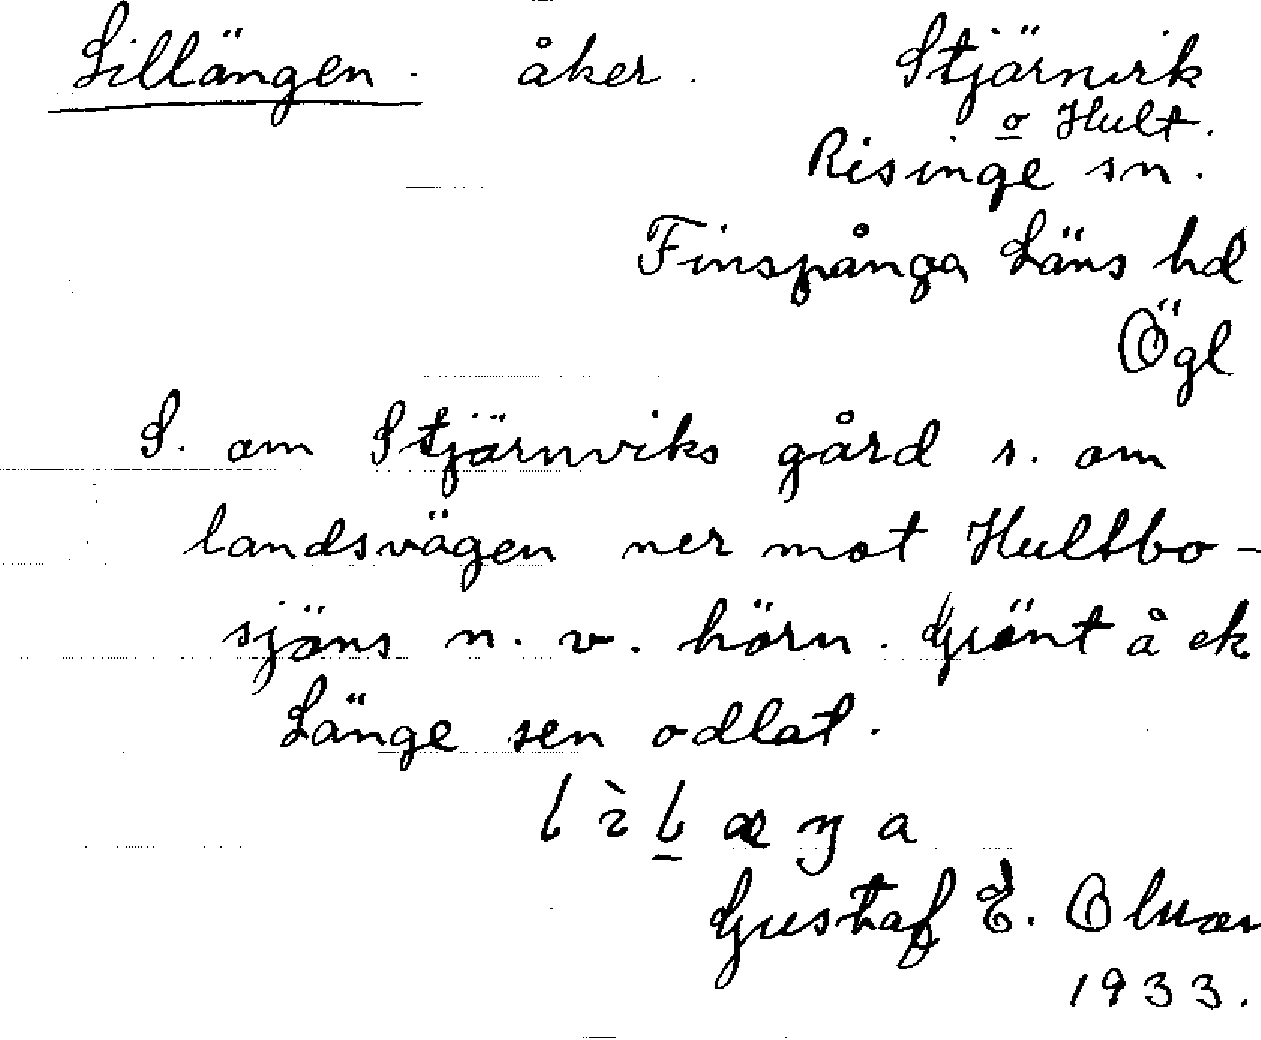 Lillängen. åker. Stjärnvik
o Hult.
Risinge sn.
Finspånga Läns hd
Ögl
S. om Stjärnviks gård s. om
landsvägen ner mot Hultbo-
sjöns n. v. hörn. Grönt å ek
Länge sen odlat.
Gustaf E.
1933.